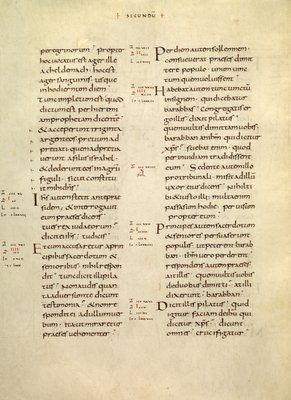 + SECUNDU
peregrinorum · propter
hoc vocatus est ager ille
acheldemach · hoc est
ager sanguinis usque
in hodiernum diem
Tunc impletum est quod
dictum per hieremi
am prophetam dicentem
& acceperunt triginta
argenteos pretium ad
pretiati quem adpretia
uerunt a filiis israhel
& dederunt eos in agrum
figuli · sicut constitu
it mihi dns ·
Ihs autem stetit ante prae
sidem · & interrogauit
eum praeses dicens
tu es rex iudaeorum
dicit ei ihs · tu dicis
Et cum accusaretur a prin
cipibus sacerdotum &
senioribus nihil respon
dit Tunc dicit illi pila
tus Non audis quan
ta aduersum te dicunt
testimonia · & non re
spondit ei ad ullum uer
bum · Ita ut miraretur
praeses uehementer ·
Per diem autem sollemnem
consueuerat praeses dimit
tere populo · unum uinc
tum quem uoluissent ·
Habebat autem tunc uinctum
insignem · qui dicebatur
barabban · Congregatis er
go illis dixit pilatus ·
quem uultis dimittam uobis ·
barabban an ihm qui dicitur
xps · Sciebat enim · quod
per inuidiam tradidissent
eum · Sedente autem illo
pro tribunali · misit ad illum
uxor eius dicens · Nihil ti
bi & iusto illi · multa enim
passa sum hodie · per uisum
propter eum ·
Principes autem sacerdotum
& seniores persuaserunt
populis · ut peterent barab
ban · ihm uero perderent
respondens autem praeses
ait illis · quem uultis uobis
de duobus dimitti · at illi
dixerunt · barabban ·
Dicit illis pilatus · quid
igitur faciam de ihu qui
dicitur xps · dicunt
omnes · crucifigatur ·